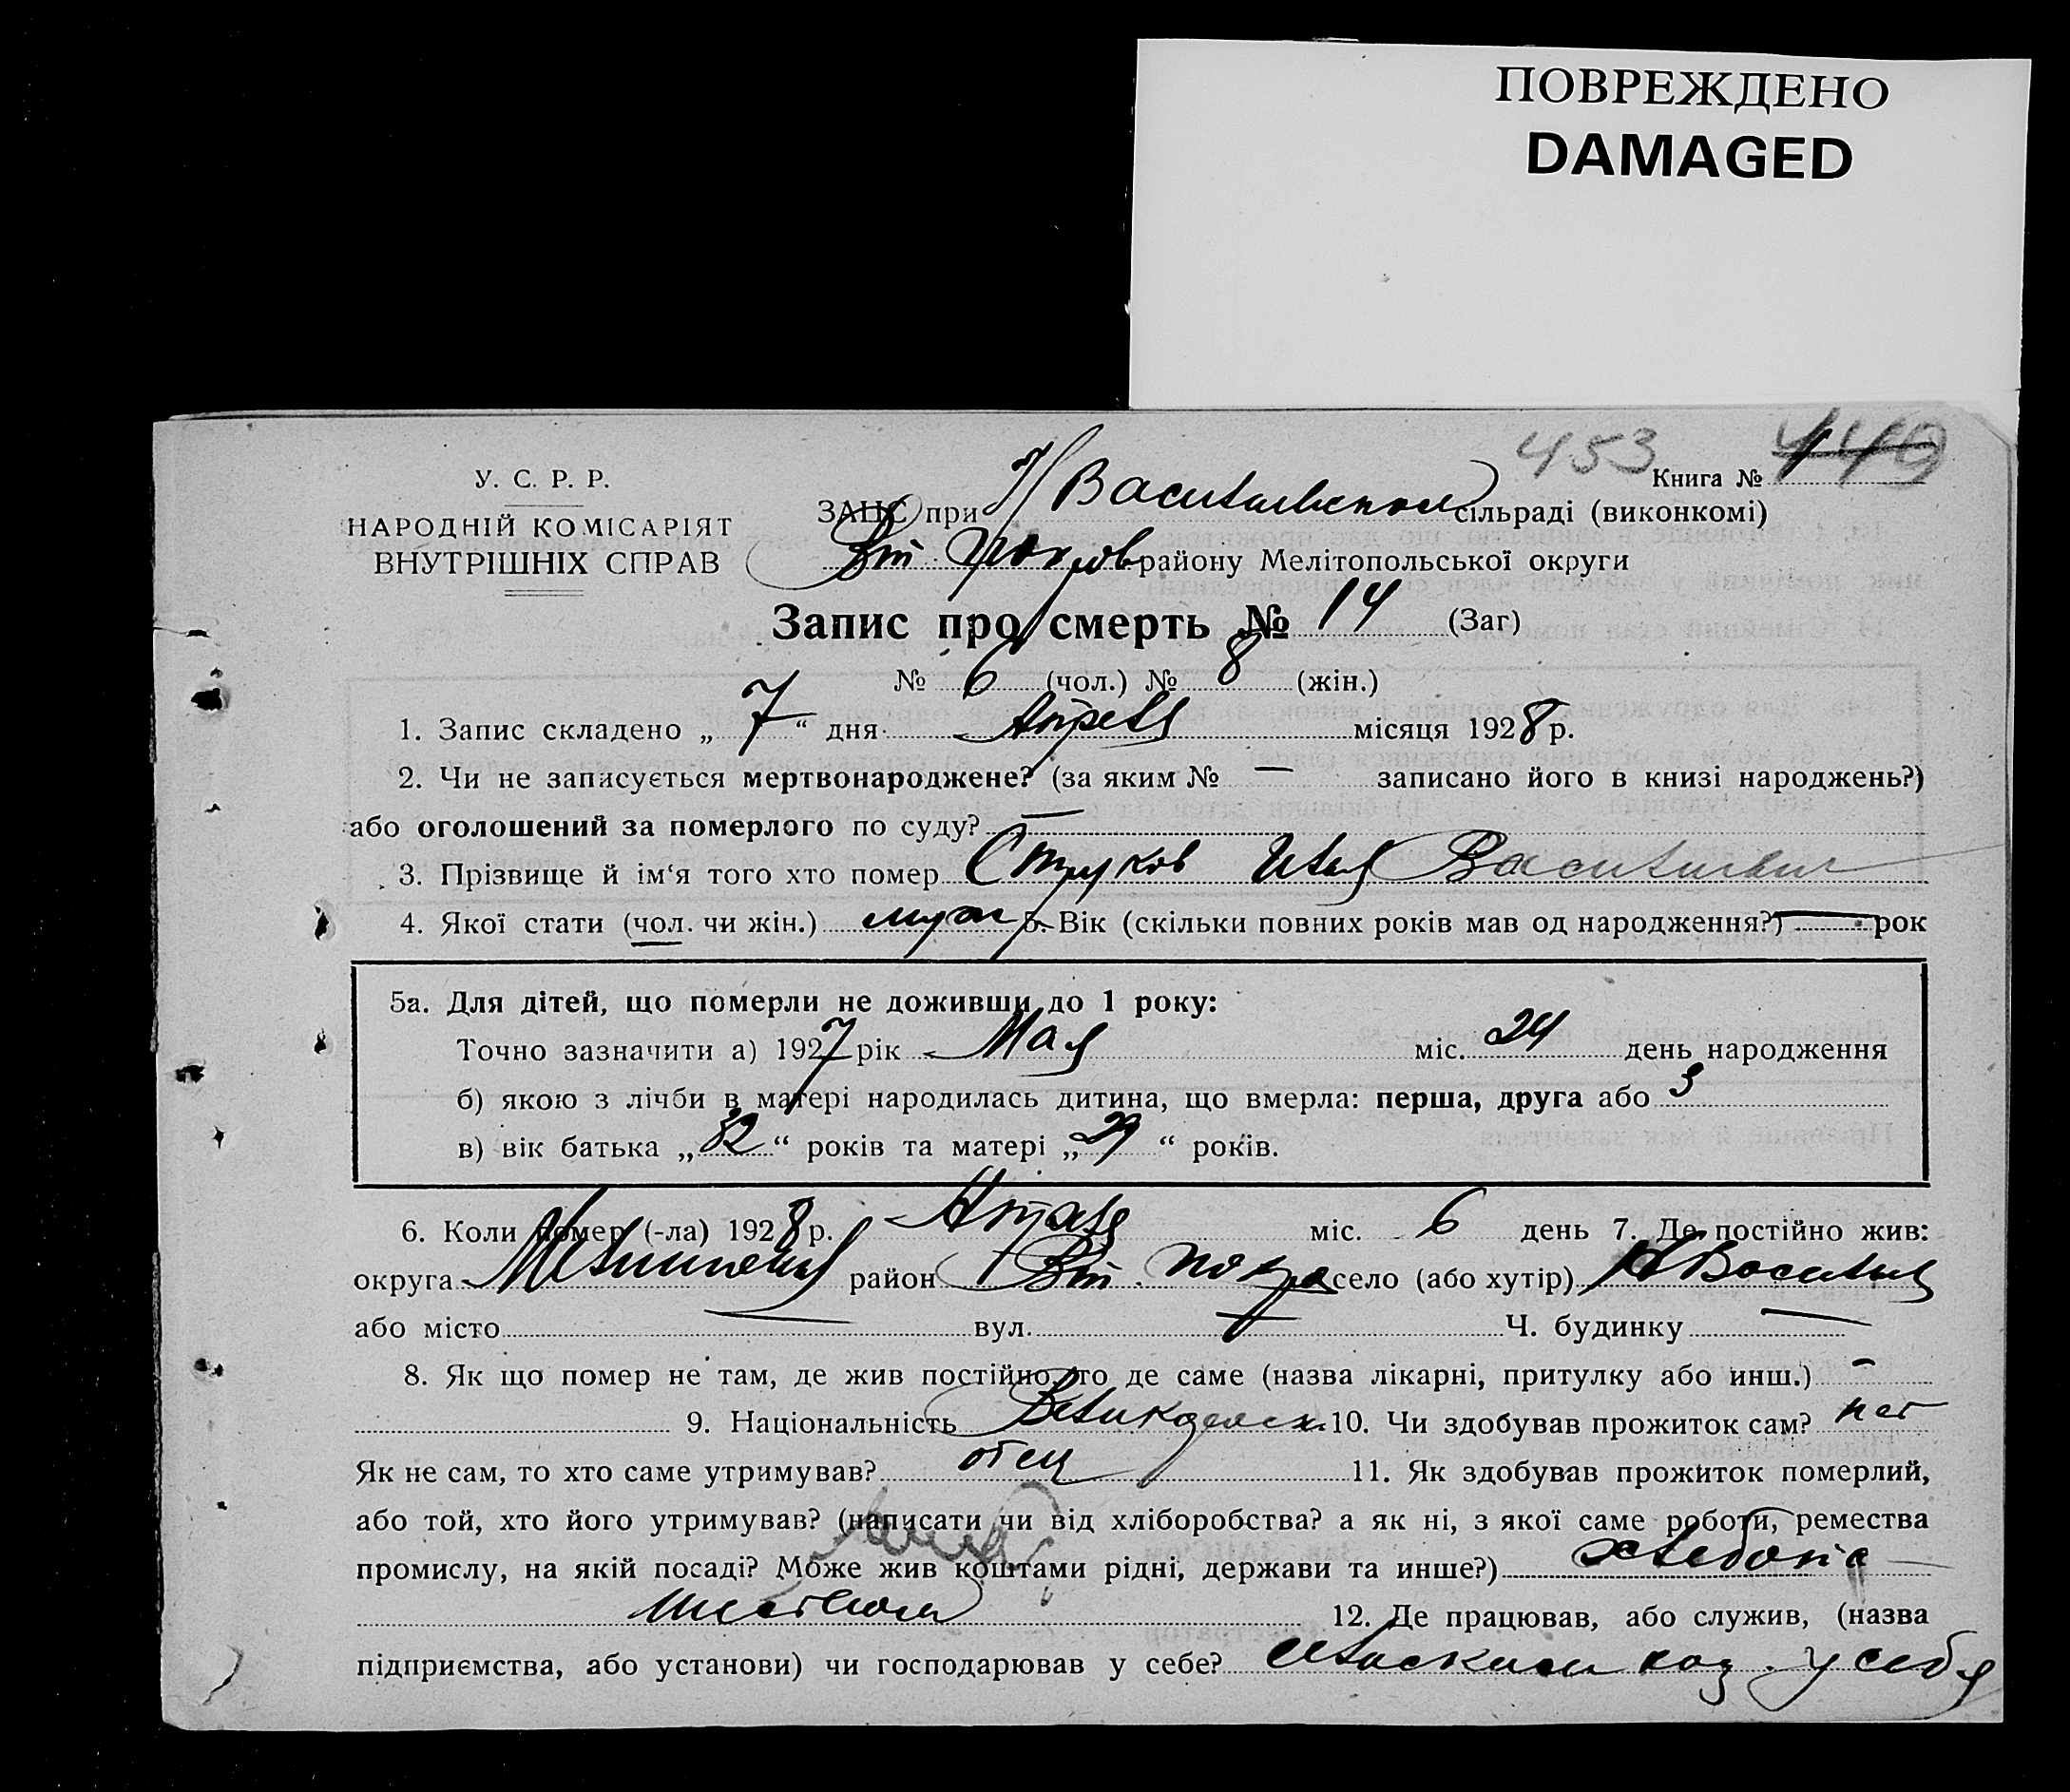 ПОВРЕЖДЕНО
DAMAGED
453 449
У. С. Р. Р.
НАРОДНІЙ КОМІСАРІЯТ
ВНУТРІШНІХ СПРАВ
Книга № 1
ЗАЦС при Васильевской сільраді (виконкомі)
району Мелітопольської округи
Запис про смерть № 14 (Заг)
№ 6 (чол.) № 8 (жін.)
1. Запис складено „ 7 “ дня Апреля місяця 1928 р.
2. Чи не записується мертвонароджене? (за яким № — записано його в книзі народжень?)
або оголошений за померлого по суду? —
3. Прізвище й ім‘я того хто помер Струков Илья Васильевич
4. Якої стати (чол. чи жін.) муж 5. Вік (скільки повних років мав од народження?) — рок
5а. Для дітей, що померли не доживши до 1 року:
Точно зазначити а) 1927 рік Мая міс. 24 день народження
б) якою з лічби в матері народилась дитина, що вмерла: перша, друга або 3
в) вік батька „ 32 “ років та матері „ 29 “ років.
6. Коли помер (-ла) 1928 р. Апреля міс. 6 день 7. Де постійно жив:
округа район село (або хутір)
або місто — вул. — Ч. будинку —
8. Як що помер не там, де жив постійно, то де саме (назва лікарні, притулку або инш.) —
9. Національність Великоросс. 10. Чи здобував прожиток сам? нет
Як не сам, то хто саме утримував? отец 11. Як здобував прожиток померлий,
або той, хто його утримував? (написати чи від хліборобства? а як ні, з якої саме роботи, ремества
промислу, на якій посаді? Може жив коштами рідні, держави та инше?) хлебопа
шеством 12. Де працював, або служив, (назва
підприємства, або установи) чи господарював у себе? сельским хоз. у себя